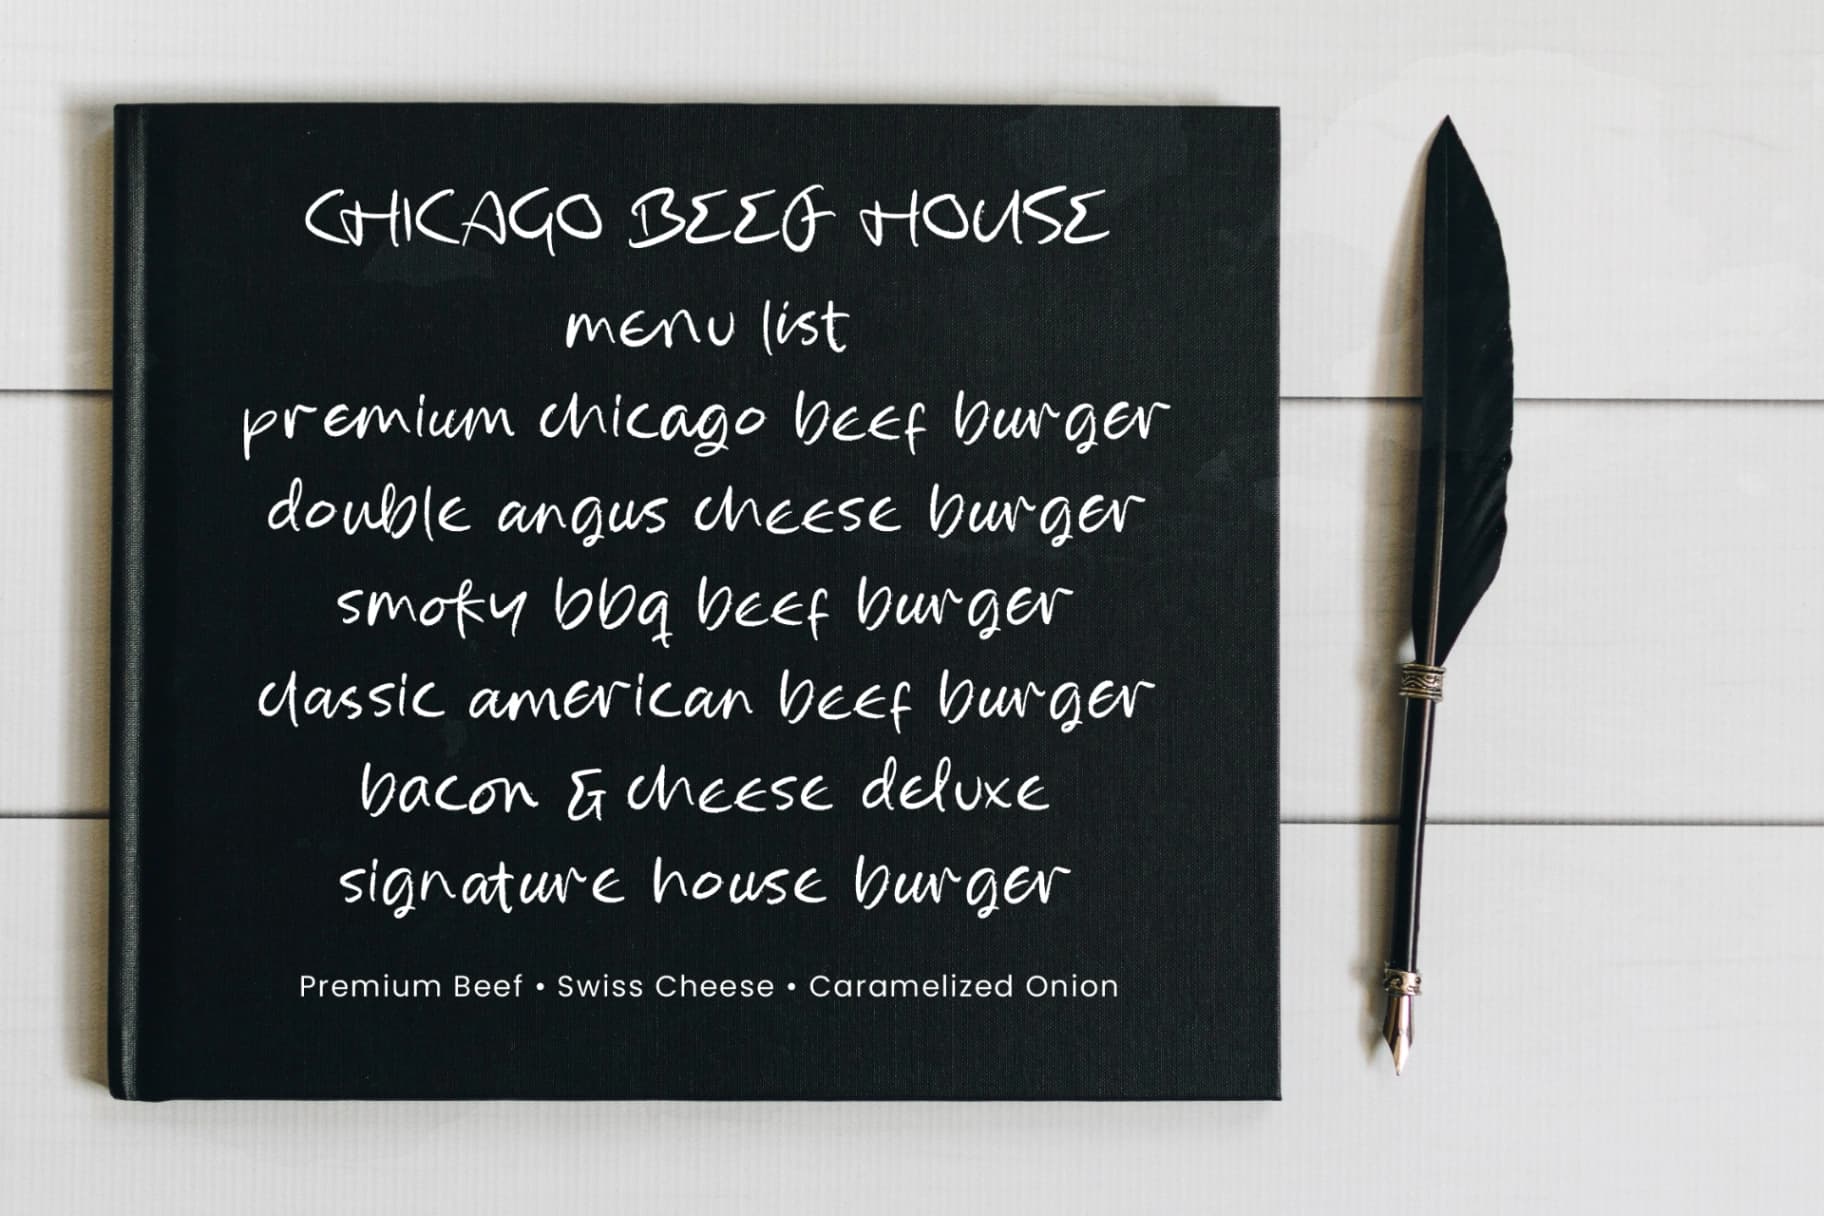 CHICAGO BEEF HOUSE
menu list
premium chicago beef burger
double angus cheese burger
smoky bbq beef burger
classic american beef burger
bacon & cheese deluxe
signature house burger
Premium Beef • Swiss Cheese • Caramelized Onion